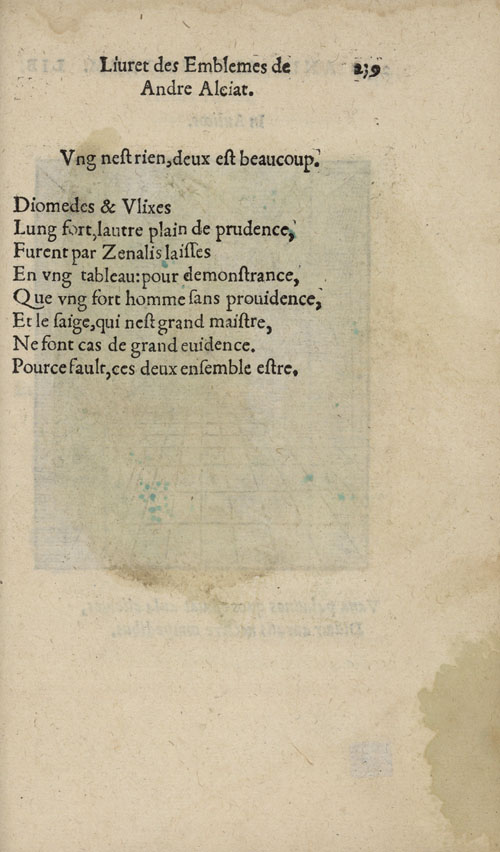 Liuret des Emblemes de 239
Andre Alciat.
Vng nest rien, deux est beaucoup.
Diomedes & Vlixes
Lung fort, lautre plain de prudence,
Furent par Zenalis laisses
En vng tableau: pour demonstrance,
Que vng fort homme sans prouidence,
Et le saige, qui nest grand maistre,
Ne font cas de grand euidence.
Pource fault, ces deux ensemble estre.